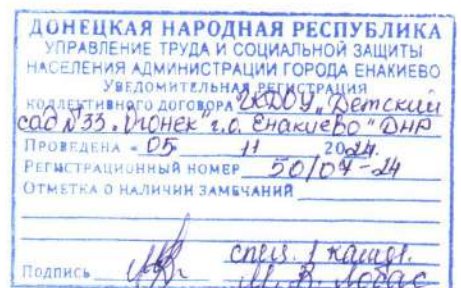 ДОНЕЦКАЯ НАРОДНАЯ РЕСПУБЛИКА
УПРАВЛЕНИЕ ТРУДА И СОЦИАЛЬНОЙ ЗАЩИТЫ
НАСЕЛЕНИЯ АДМИНИСТРАЦИИ ГОРОДА ЕНАКИЕВО
УВЕДОМИТЕЛЬНАЯ РЕГИСТРАЦИЯ
КОЛЛЕКТИВНОГО ДОГОВОРА ГКДОУ "Детский
сад №33 "Огонек" г.о. Енакиево" ДНР
ПРОВЕДЕНА « 05 11 2024.
РЕГИСТРАЦИОННЫЙ НОМЕР 50/04-24
ОТМЕТКА О НАЛИЧИИ ЗАМЕЧАНИЙ
спец. 1 катег.
ПОДПИСЬ М. В. Лобас